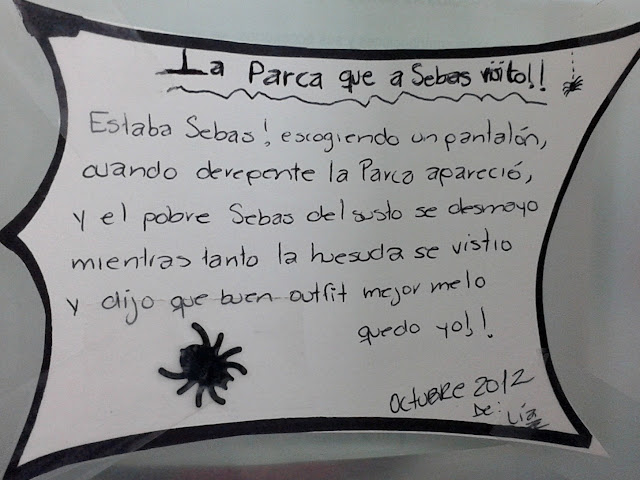 La Parca que a Sebas visito!!
Estaba Sebas! escogiendo un pantalón,
cuando derepente la Parca apareció,
y el pobre Sebas del susto se desmayo
mientras tanto la huesuda se vistio
y dijo que buen outfit mejor me lo
quedo yo!!
OCTUBRE 2012
De: Lia